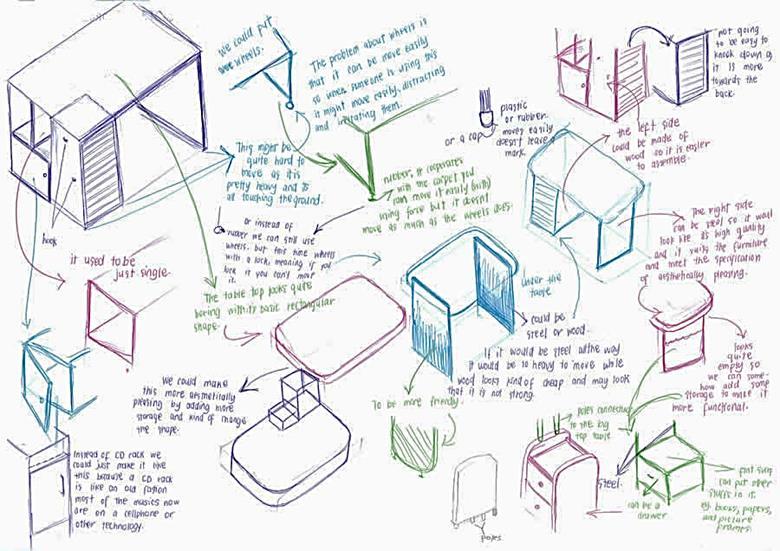 We could put
wheels.
The problem about wheels is
that it can be move easily
so when someone is using this
it might move easily, distracting
and irritating them.
not going
to be easy to
knock down as
it is more
towards the
back.
plastic
or rubber.
moves easily
doesn't leave a
mark.
or a cap
the left side
could be made of
wood so it is easier
to assemble.
This might be
quite hard to
move as it is
pretty heavy and is
all touching the ground.
rubber, it cooperates
with the carpet you
can move it easily (with)
using force but it doesn't
move as much as the wheels does.
The right side
can be steel so it will
look like its high quality
and it suits the furniture
and meet the specification
of aesthetically pleasing.
hook
or instead of
rubber we can still use
wheels. but this time wheels
with a lock, meaning if you
lock it you can't move
it.
it used to be
just single.
The table top looks quite
boring with its basic rectangular
shape.
under the
table
could be
steel or wood.
If it would be steel all the way
it would be so heavy to move while
wood looks kind of cheap and may look
that it is not strong.
looks
quite
empty so
we can some-
how add some
storage to make it
more functional.
We could make
this more aesthetically
pleasing by adding more
storage and kind of change
the shape.
To be more friendly.
poles connected
to the big
top table.
Instead of CD rack we
could just make it like
this because a CD rack
is like an old fashion
most of the musics now
are on a cellphone or
other technology.
steel.
can be a
drawer
can put other
stuffs in it.
eg. books, papers,
and picture
frames.
poles